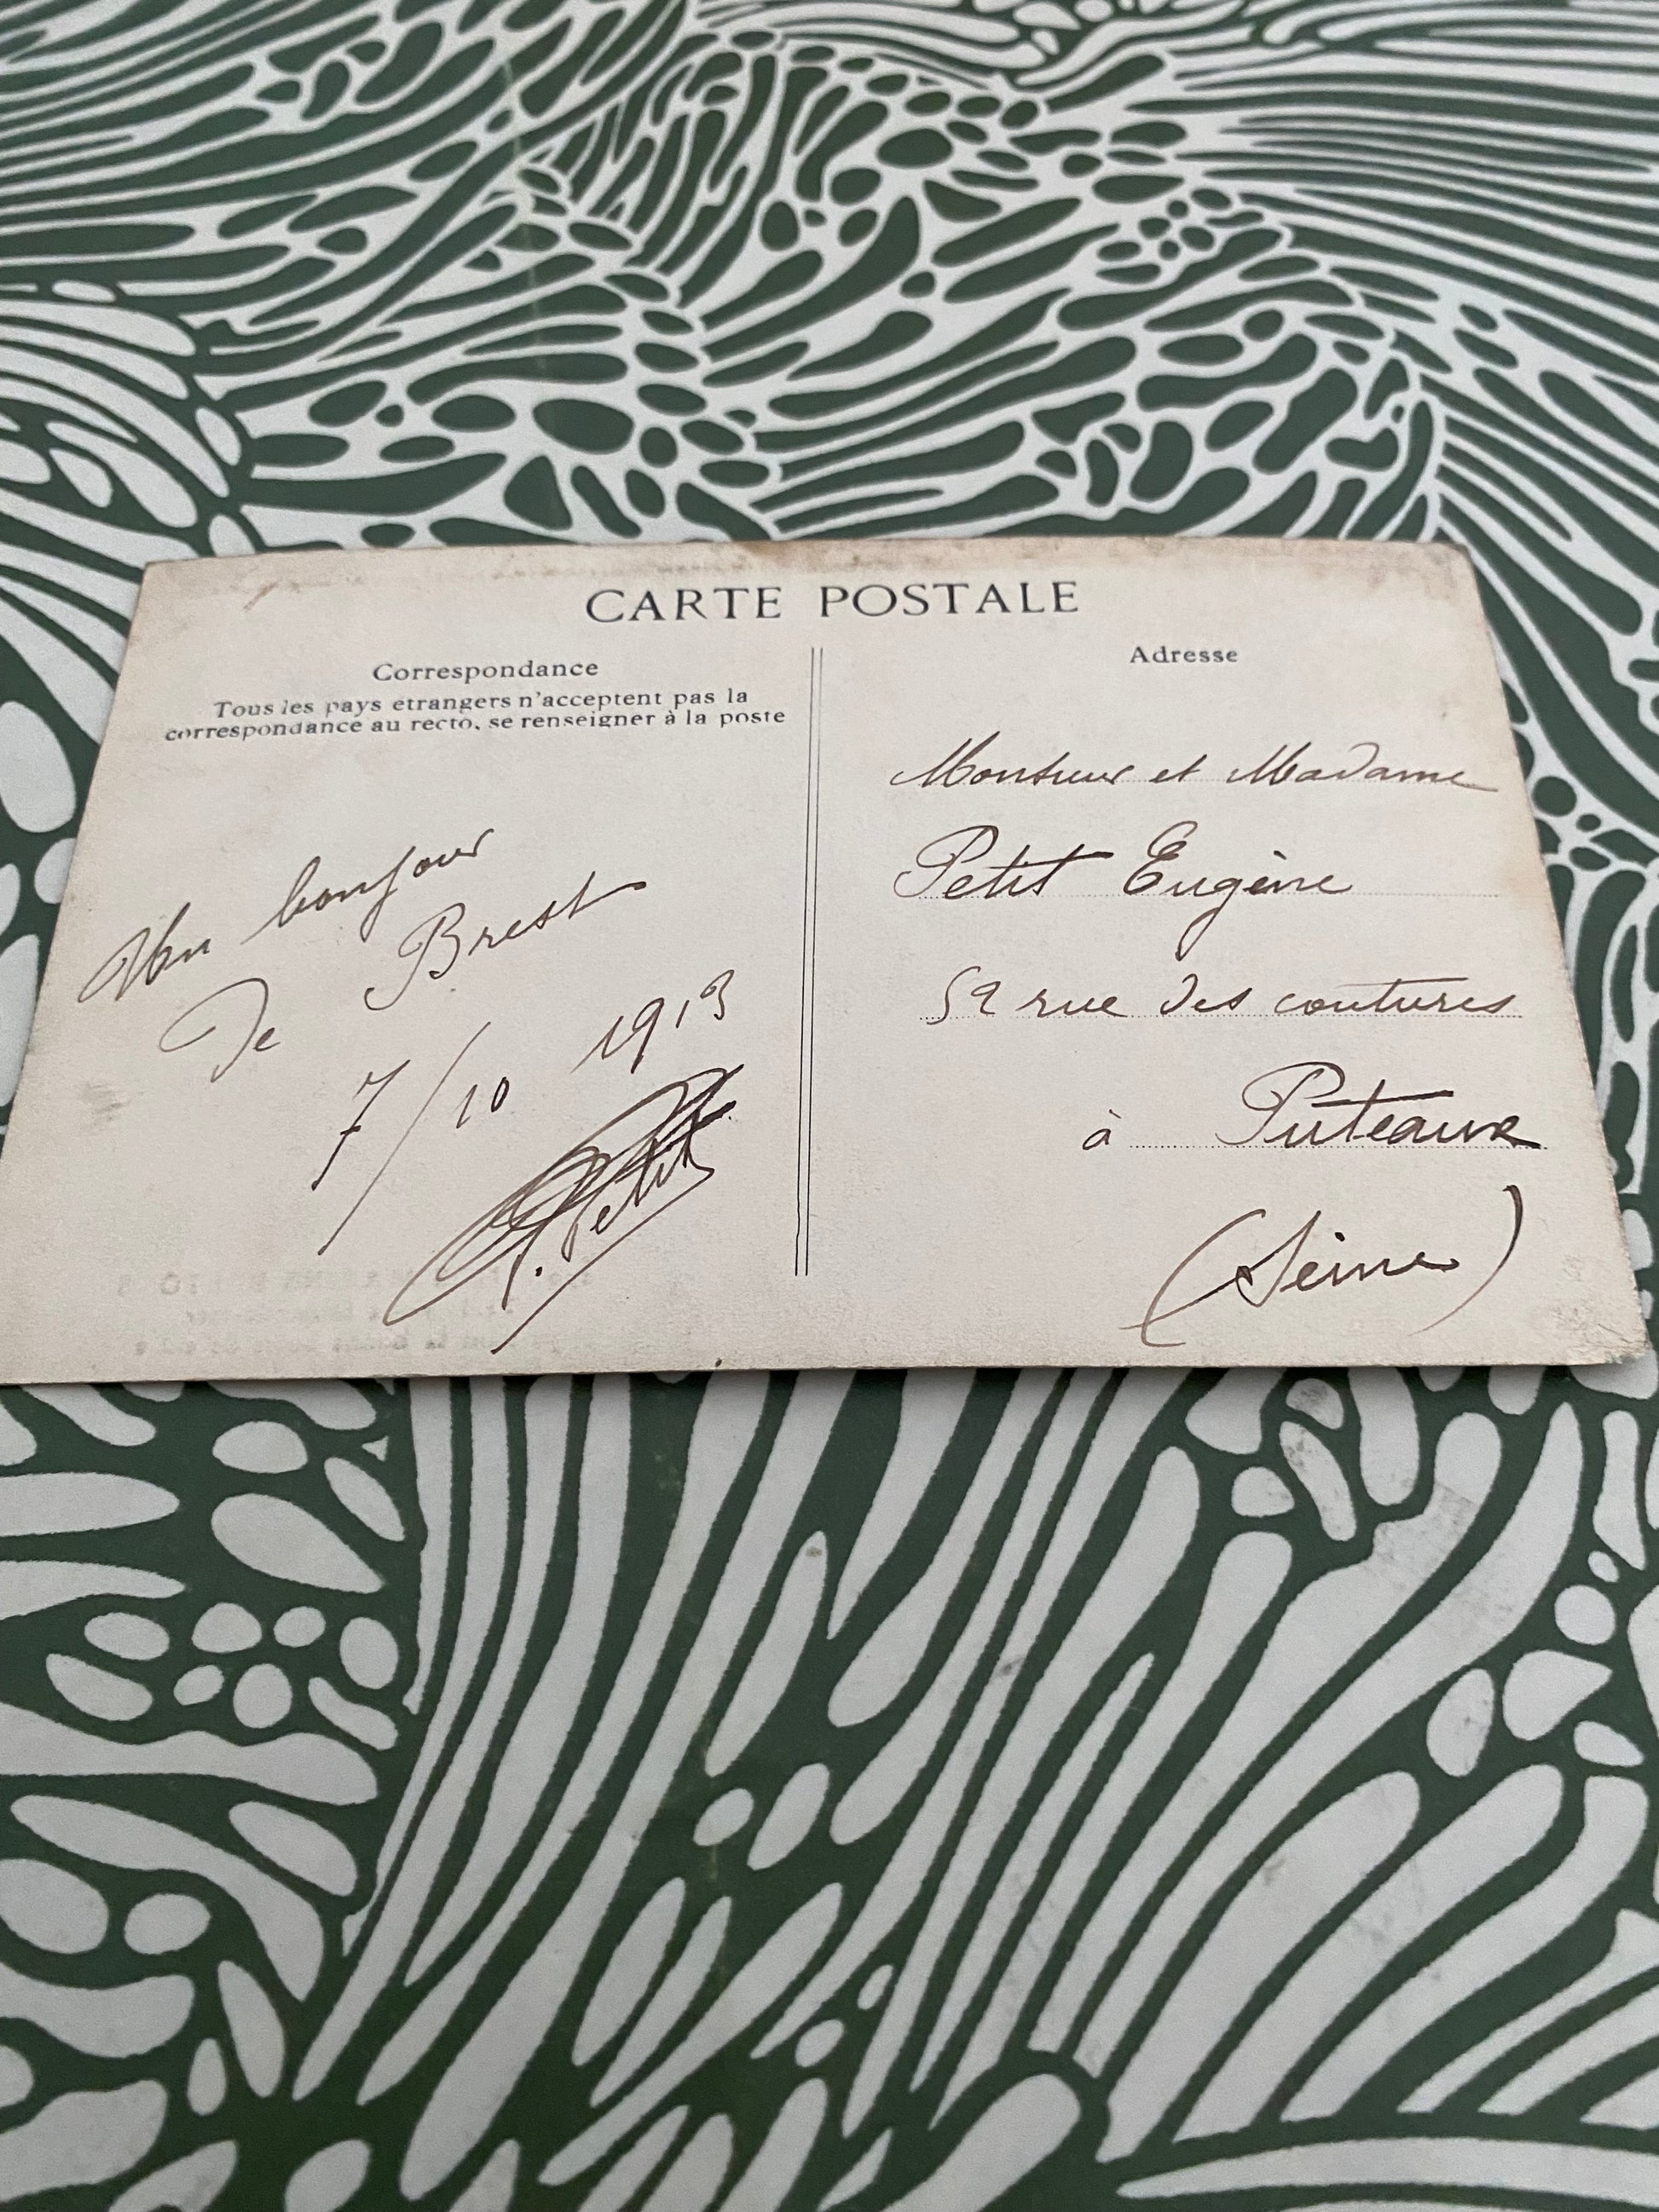 CARTE POSTALE
Correspondance
Tous les pays étrangers n'acceptent pas la
correspondance au recto, se renseigner à la poste
Un bonjour
De Brest
7/10 1913
Petit
Adresse
Monsieur et Madame
Petit Eugène
52 rue des coutures
à Puteaux
(Seine)